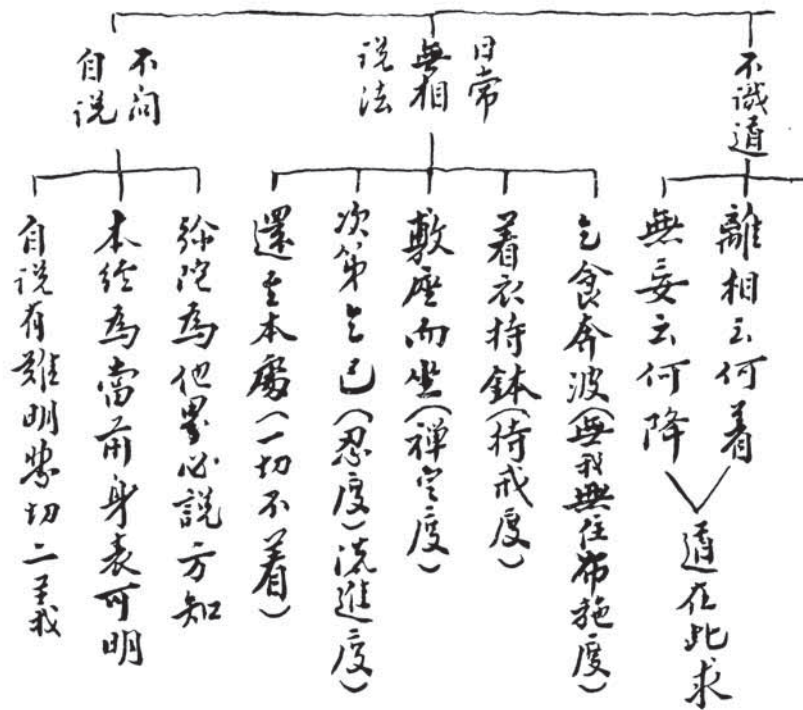 不識道
離相云何着
無妄云何降
道在此求
日常
無相
说法
乞食奔波(無我無住布施度)
着衣持鉢(持戒度)
敷座而坐(禅定度)
次第乞已(忍度)
進度)
還至本處(一切不着)
不问
自说
弥陀為他界必説方知
本经為當前身表可明
自说有難明勢切二義